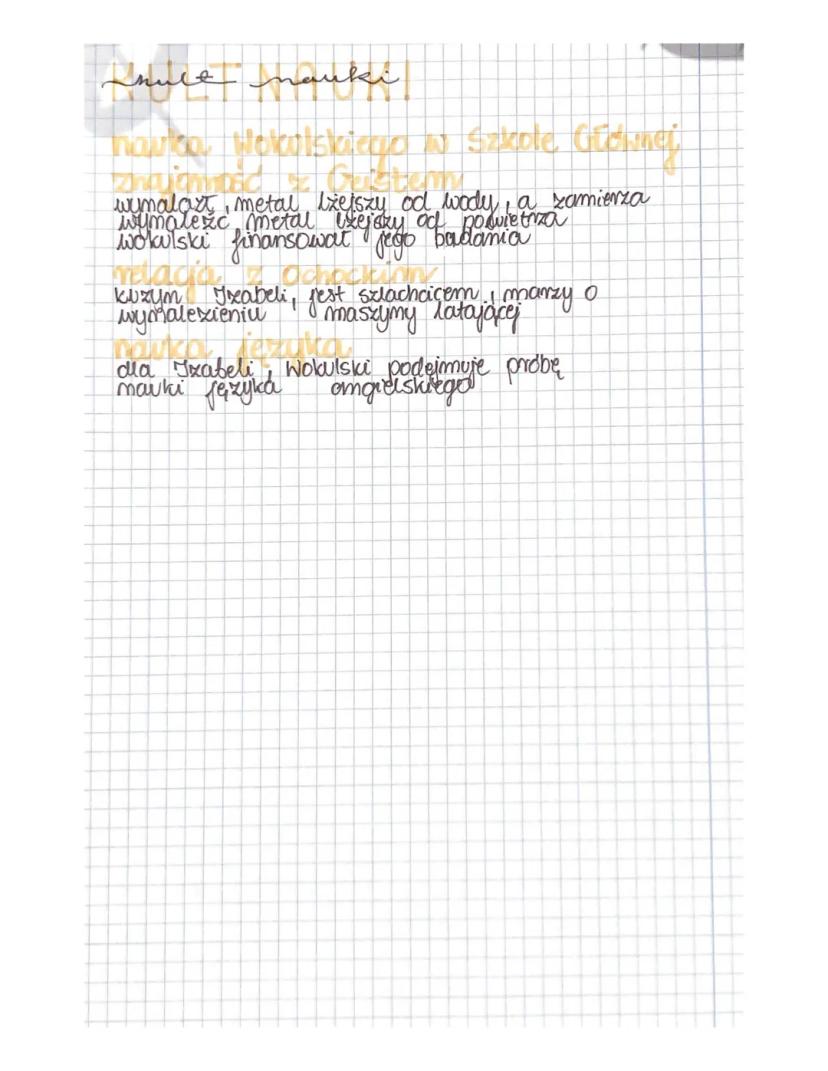 KULT NAUKI
kult nauki
nauka Wokulskiego w Szkole Głównej
znajomość z Geistem
wynalazł metal lżejszy od wody, a zamierza
wynaleźć metal lżejszy od powietrza
wokulski finansował jego badania
relacja z Ochockim
kuzyn Izabeli, jest szlachcicem, marzy o
wynalezieniu maszyny latającej
nauka języka
dla Izabeli, Wokulski podejmuje próbę
nauki języka angielskiego